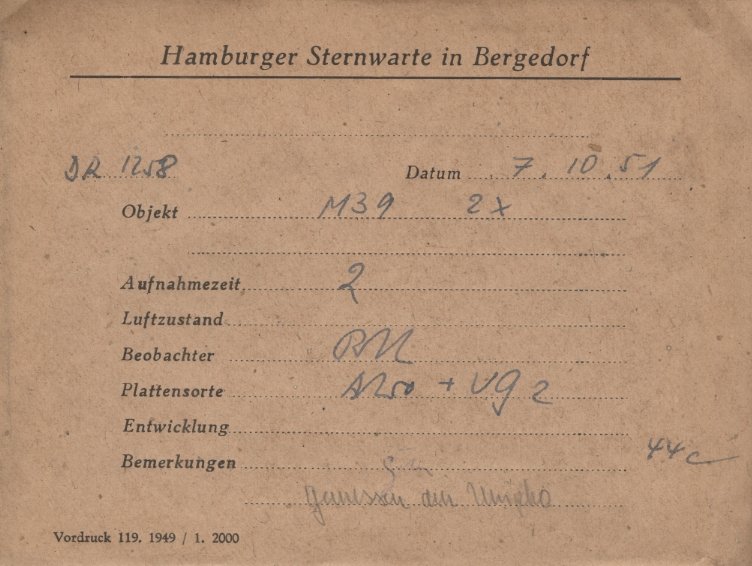 Hamburger Sternwarte in Bergedorf
DR 1258 Datum 7.10.51
Objekt M39 2x
Aufnahmezeit 2
Luftzustand
Beobachter
Plattensorte + UG 2
Entwicklung
Bemerkungen 44c
Vordruck 119. 1949 / 1. 2000